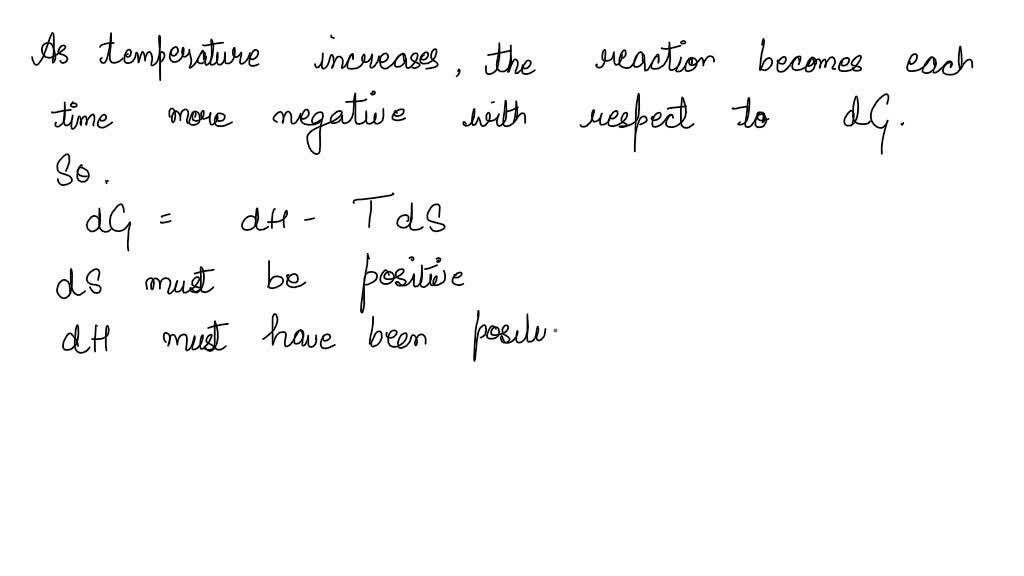 As temperature increases, the reaction becomes each
time more negative with respect to dG.
So.
dG = dH - T dS
dS must be positive
dH must have been